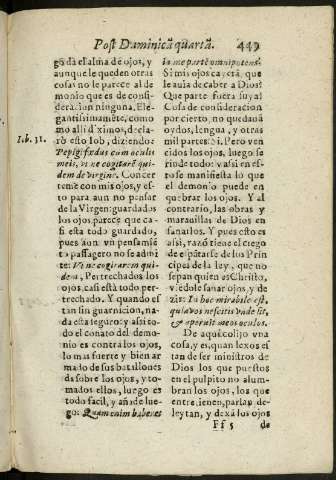 Post Dominicã quartã. 449
go dá el alma de ojos, y
aunque le queden otras
cosas no le parece al de
monio que es de consi-
deracion ninguna. Ele-
gantissimamẽte, como
mo alli diximos, decla-
rò esto Iob, diziendo:
Iob. 31.
Pepigi fœdus cum oculis
meis, vt ne cogitarẽ qui-
dem de virgine. Concer
teme con mis ojos, y es-
to para aun no pensar
de la Virgen: guardados
los ojos parece que ca-
si esta todo guardado,
pues aun vn pensamiẽ
to passagero no se admi
te: Vt ne cogitarem qui-
dem. Pertrechados los
ojos, casi está todo per-
trechado. Y quando es
tan sin guarnicion, na-
da esta seguro: y assi to-
do el conato del demo-
nio es contra los ojos,
lo mas fuerte y bien ar
mado de sus batallones
da sobre los ojos, y to-
mados ellos, luego es
todo facil, y añade lue-
go: Quam enim haberet
in me partẽ omnipotens.
Si mis ojos caerá, que
le auia de caber a Dios?
Que parte fuera suya?
Cosa de consideracion
por cierto, no quedauã
oydos, lengua, y otras
mil partes: si. Pero ven
cidos los ojos, luego se
rinde todo: y assi en es-
to se manifiesta lo que
el demonio puede en
quebrar los ojos. Y al
contrario, las obras y
marauillas de Dios en
sanarlos. Y pues esto es
assi, razõ tiene el ciego
de espãtarse de los Prin
cipes de la ley, que no
sepan quien es Christo,
viédole sanar ojos, y de
zir: In hoc mirabile est,
quia vos nescitis vnde sit,
& aperuit meos oculos.
De aqui colijo vna
cosa, y es, quan lexos es
tan de ser ministros de
Dios los que puestos
en el pulpito no alum-
bran los ojos, los que
entretienen, parlan, de-
leytan, y dexã los ojos
Ff 5 de